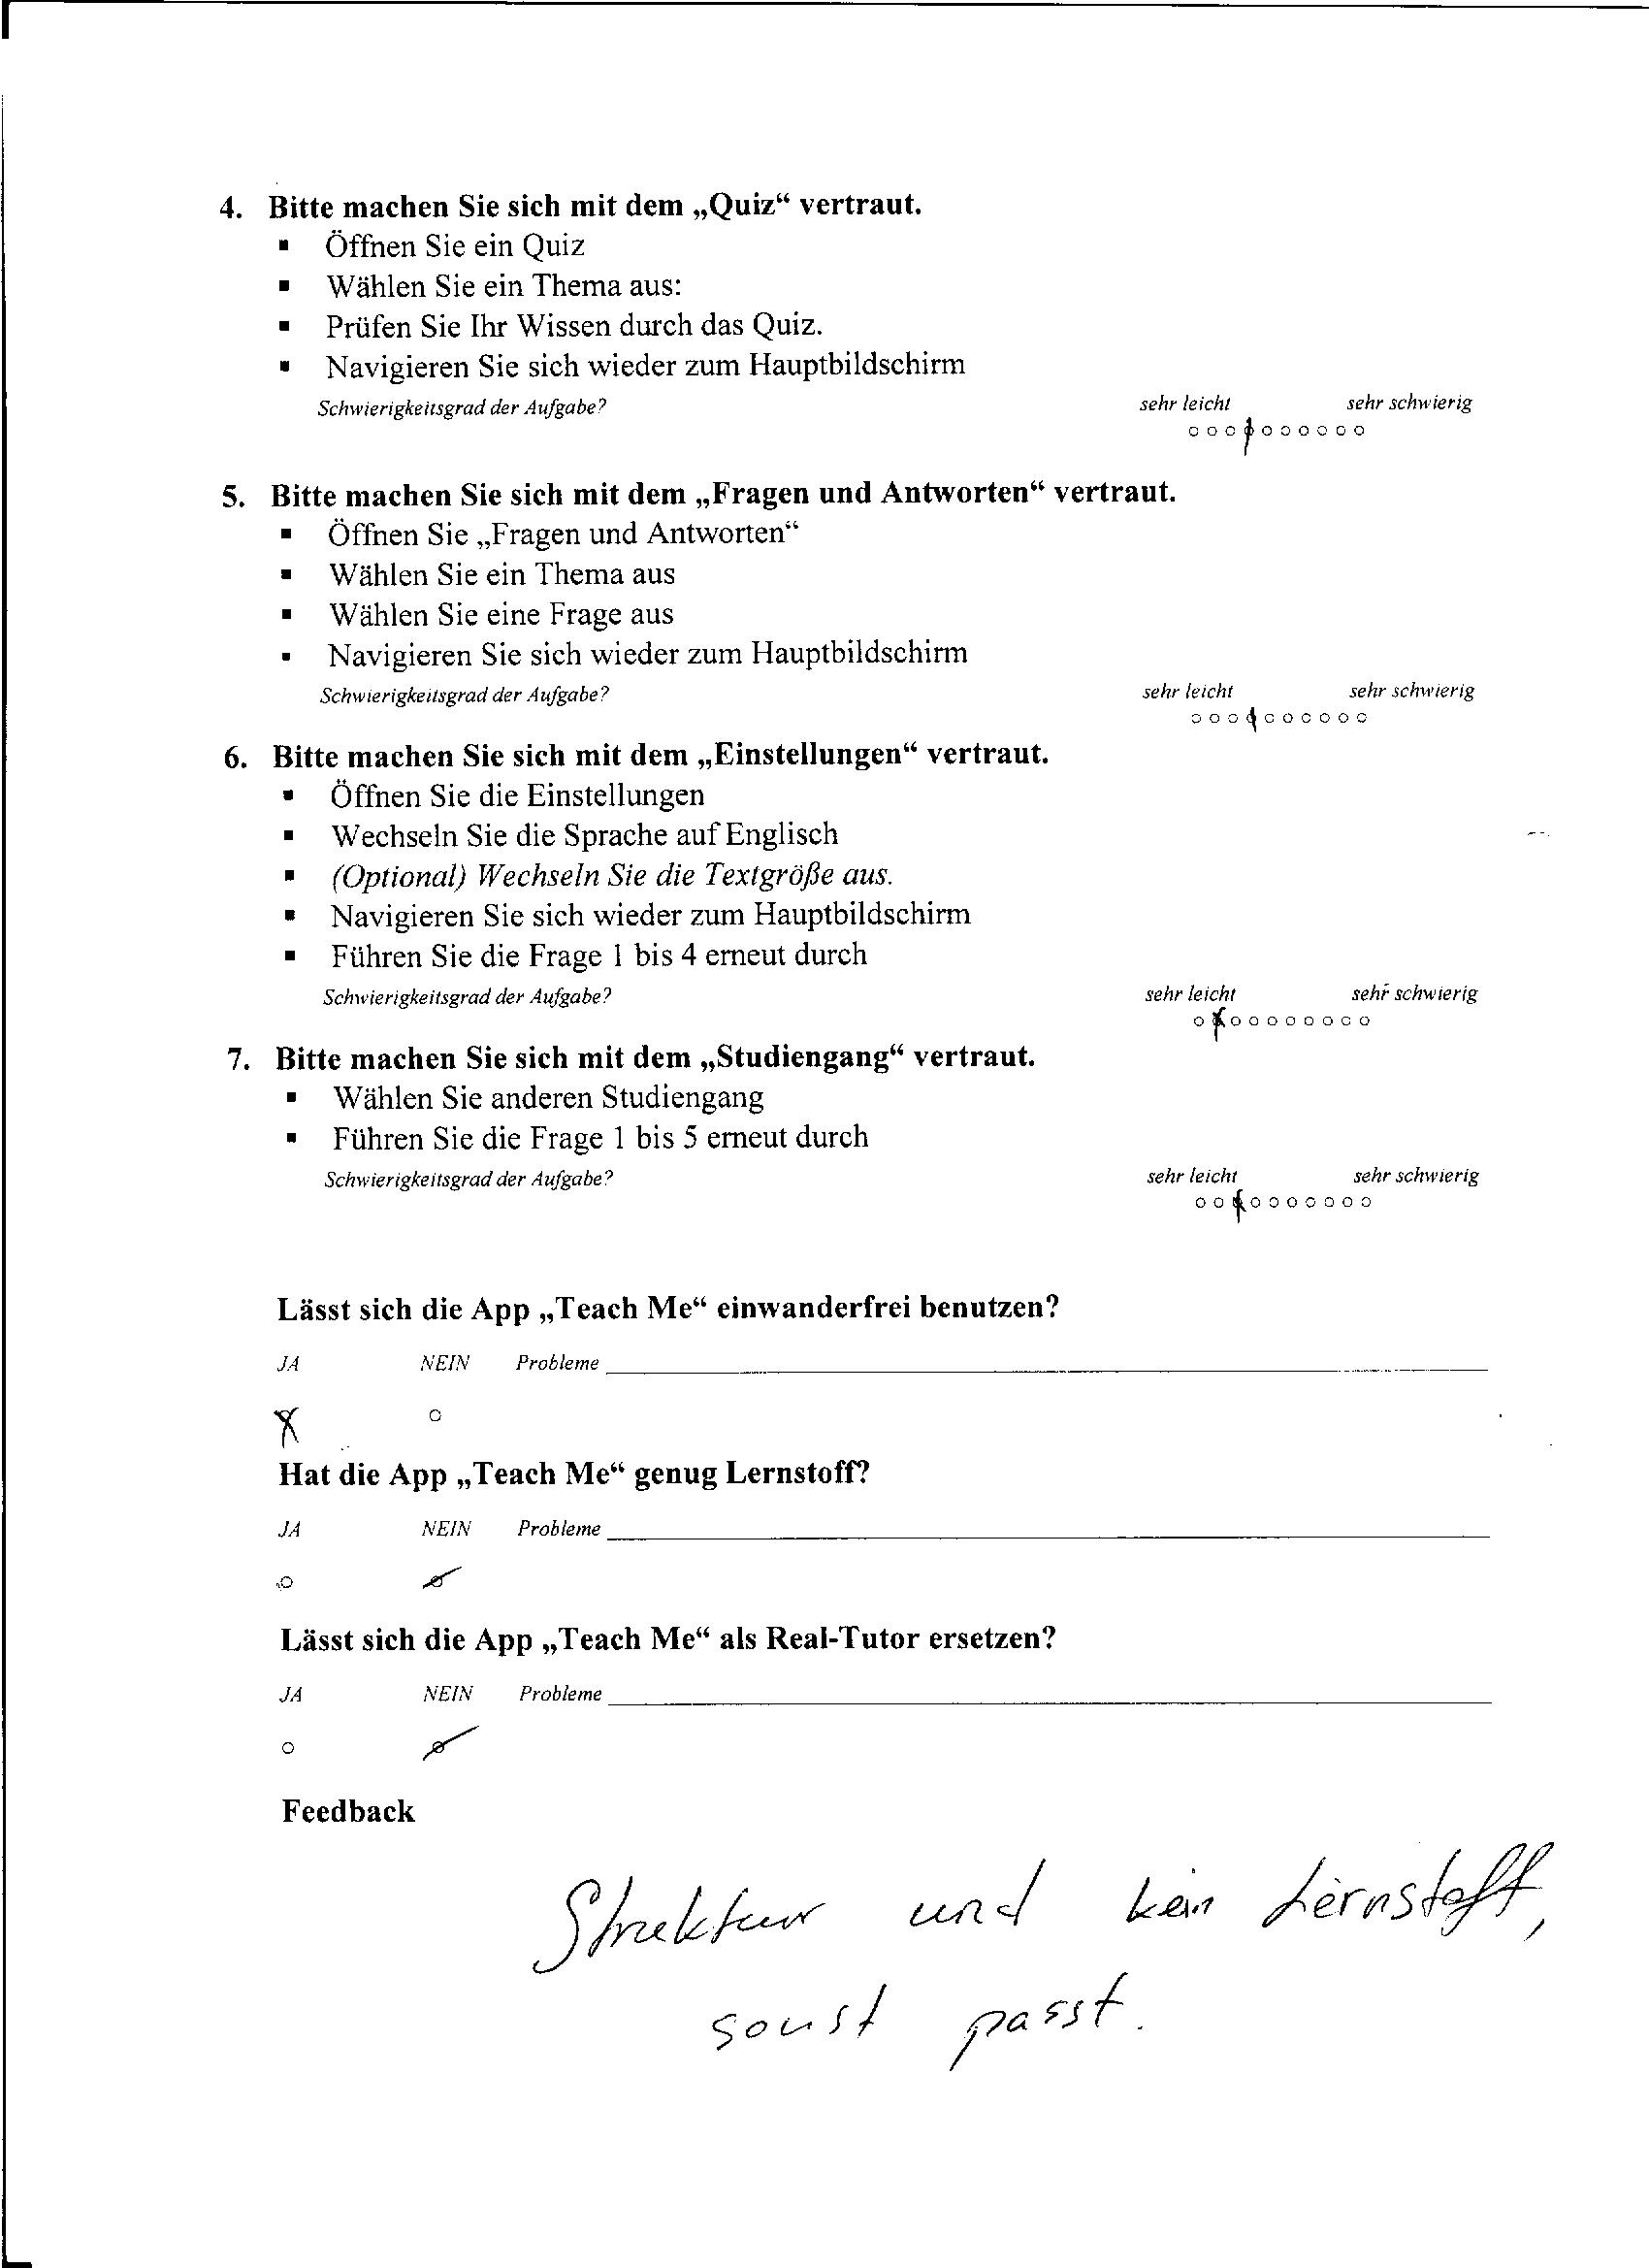 4. Bitte machen Sie sich mit dem „Quiz“ vertraut.
▪ Öffnen Sie ein Quiz
▪ Wählen Sie ein Thema aus:
▪ Prüfen Sie Ihr Wissen durch das Quiz.
▪ Navigieren Sie sich wieder zum Hauptbildschirm
Schwierigkeitsgrad der Aufgabe? sehr leicht sehr schwierig
5. Bitte machen Sie sich mit dem „Fragen und Antworten“ vertraut.
▪ Öffnen Sie „Fragen und Antworten“
▪ Wählen Sie ein Thema aus
▪ Wählen Sie eine Frage aus
▪ Navigieren Sie sich wieder zum Hauptbildschirm
Schwierigkeitsgrad der Aufgabe? sehr leicht sehr schwierig
6. Bitte machen Sie sich mit dem „Einstellungen“ vertraut.
▪ Öffnen Sie die Einstellungen
▪ Wechseln Sie die Sprache auf Englisch
▪ (Optional) Wechseln Sie die Textgröße aus.
▪ Navigieren Sie sich wieder zum Hauptbildschirm
▪ Führen Sie die Frage 1 bis 4 erneut durch
Schwierigkeitsgrad der Aufgabe? sehr leicht sehr schwierig
7. Bitte machen Sie sich mit dem „Studiengang“ vertraut.
▪ Wählen Sie anderen Studiengang
▪ Führen Sie die Frage 1 bis 5 erneut durch
Schwierigkeitsgrad der Aufgabe? sehr leicht sehr schwierig
Lässt sich die App „Teach Me“ einwanderfrei benutzen?
JA NEIN Probleme
Hat die App „Teach Me“ genug Lernstoff?
JA NEIN Probleme
Lässt sich die App „Teach Me“ als Real-Tutor ersetzen?
JA NEIN Probleme
Feedback
Struktur und kein Lernstoff,
sonst passt.